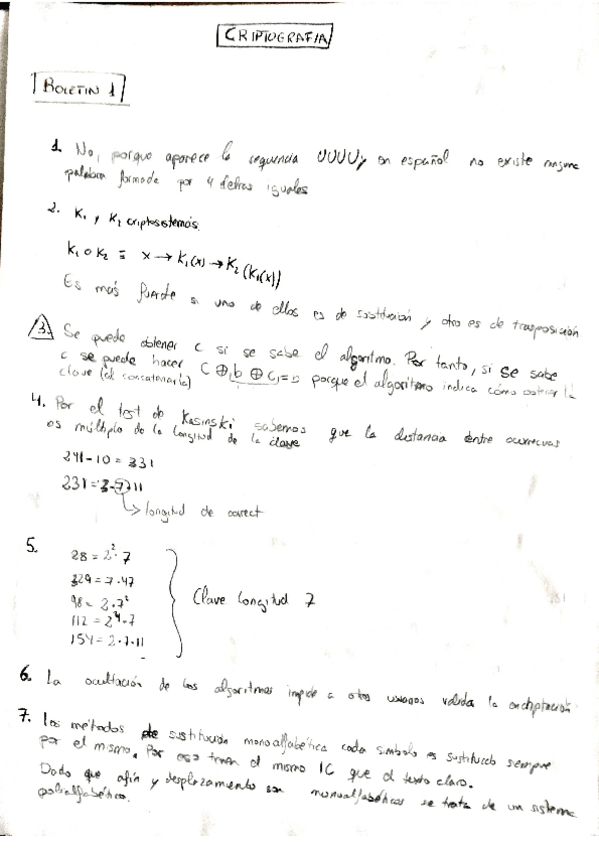 CRIPTOGRAFIA
BOLETIN 1
1. No, porque aparece la sequencia UUUU y en español no existe ninguna
palabra formada por 4 letras iguales
2. K₁ y K₂ criptosistemas.
K₁ o K₂ ≡ x → K₁(x) → K₂(K₁(x))
Es más fuerte si uno de ellos es de sustitución y otro es de trasposición
3. Se puede obtener c si se sabe el algoritmo. Por tanto, si se sabe
c se puede hacer C ⊕ b ⊕ c = porque el algoritmo indica cómo la
clave (el concatenarla)
4. Por el test de Kasinski sabemos que la distancia entre
es múltiplo de la longitud de la clave
241-10 = 331
231 = 3·7·11
longitud de
5.
28 = 2²·7
329 = 7·47
98 = 2·7²
112 = 2⁴·7
154 = 2·7·11
Clave longitud 7
6. La ocultación de los algoritmos impide a otros usuarios la
7. Los métodos de sustitución monoalfabética cada símbolo es sustituido siempre
por el mismo. Por eso tienen el mismo IC que el texto claro.
Dado que afín y desplazamiento son monoalfabéticos se trata de un sistema
polialfabético.